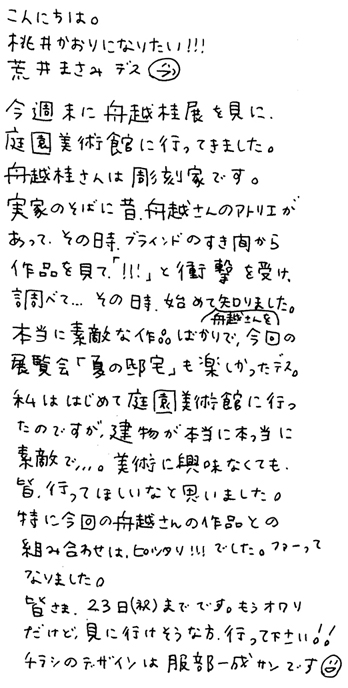 こんにちは。
桃井かおりになりたい!!!
荒井まさみ デス
今週末に舟越桂展を見に、
庭園美術館に行ってきました。
舟越桂さんは彫刻家です。
実家のそばに昔、舟越さんのアトリエが
あって、その時、ブラインドのすき間から
作品を見て、「!!!」と衝撃を受け、
調べて… その時、始めて舟越さんを知りました。
本当に素敵な作品ばかりで、今回の
展覧会「夏の邸宅」も楽しかったデス。
私ははじめて庭園美術館に行っ
たのですが、建物が本当に本っ当に
素敵で、、、。美術に興味なくても、
皆、行ってほしいなと思いました。
特に今回の舟越さんの作品との
組み合わせは、ピッタリ!!!でした。ファーって
なりました。
皆さま、23日(祝)までです。もうオワリ
だけど、見に行けそうな方、行って下さい!!
チラシのデザインは服部一成サンです